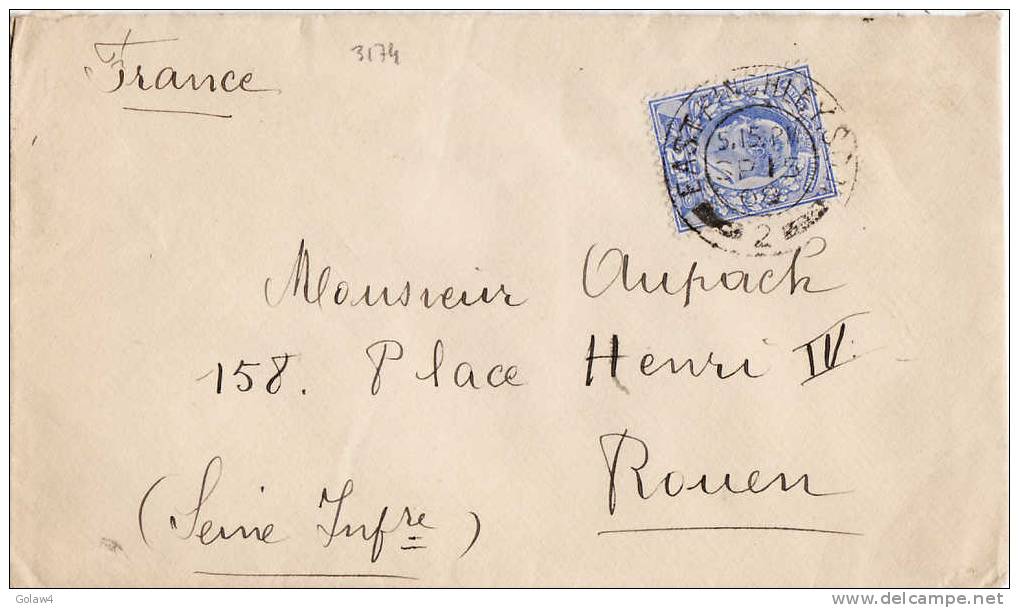 France
3174
EAST FINCHLEY S.O.
5.15.PM
SP 15
08
2
Monsieur Aupach
158. Place Henri IV.
Rouen
(Seine Infre)
Golaw4
www.delcampe.net